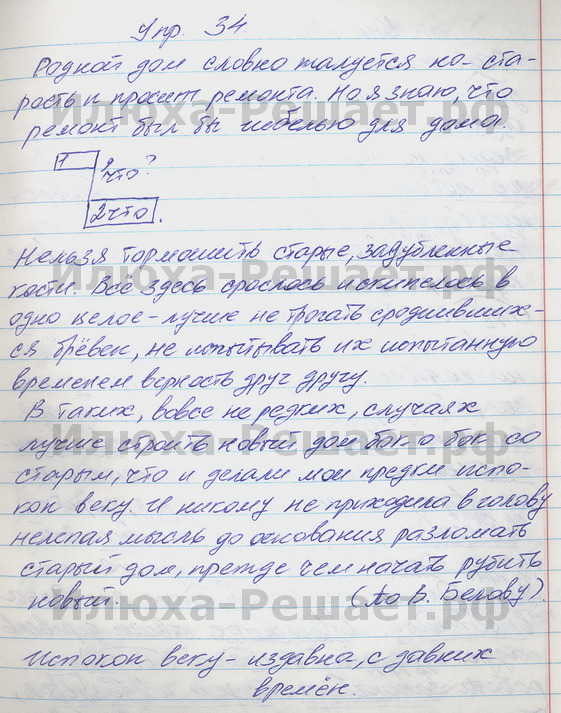 Упр. 34.
Родной дом словно жалуется на ста-
рость и просит ремонта. Но я знаю, что
ремонт был бы гибелью для дома.
1
что?
2 что.
Нельзя тормошить старые, задубленные
кости. Всё здесь срослось и скипелось в
одно целое - лучше не трогать сроднивших-
ся брёвен, не испытывать их испытанную
временем верность друг другу.
В таких, вовсе не редких, случаях
лучше строить новый дом бок о бок со
старым, что и делали мои предки испо-
кон веку. И никому не приходила в голову
нелепая мысль до основания разломать
старый дом, прежде чем начать рубить
новый. (По В. Белову).
Испокон веку - издавна, с давних
времён.
Илюха-Решает.рф
Илюха-Решает.рф
Илюха-Решает.рф
Илюха-Решает.рф